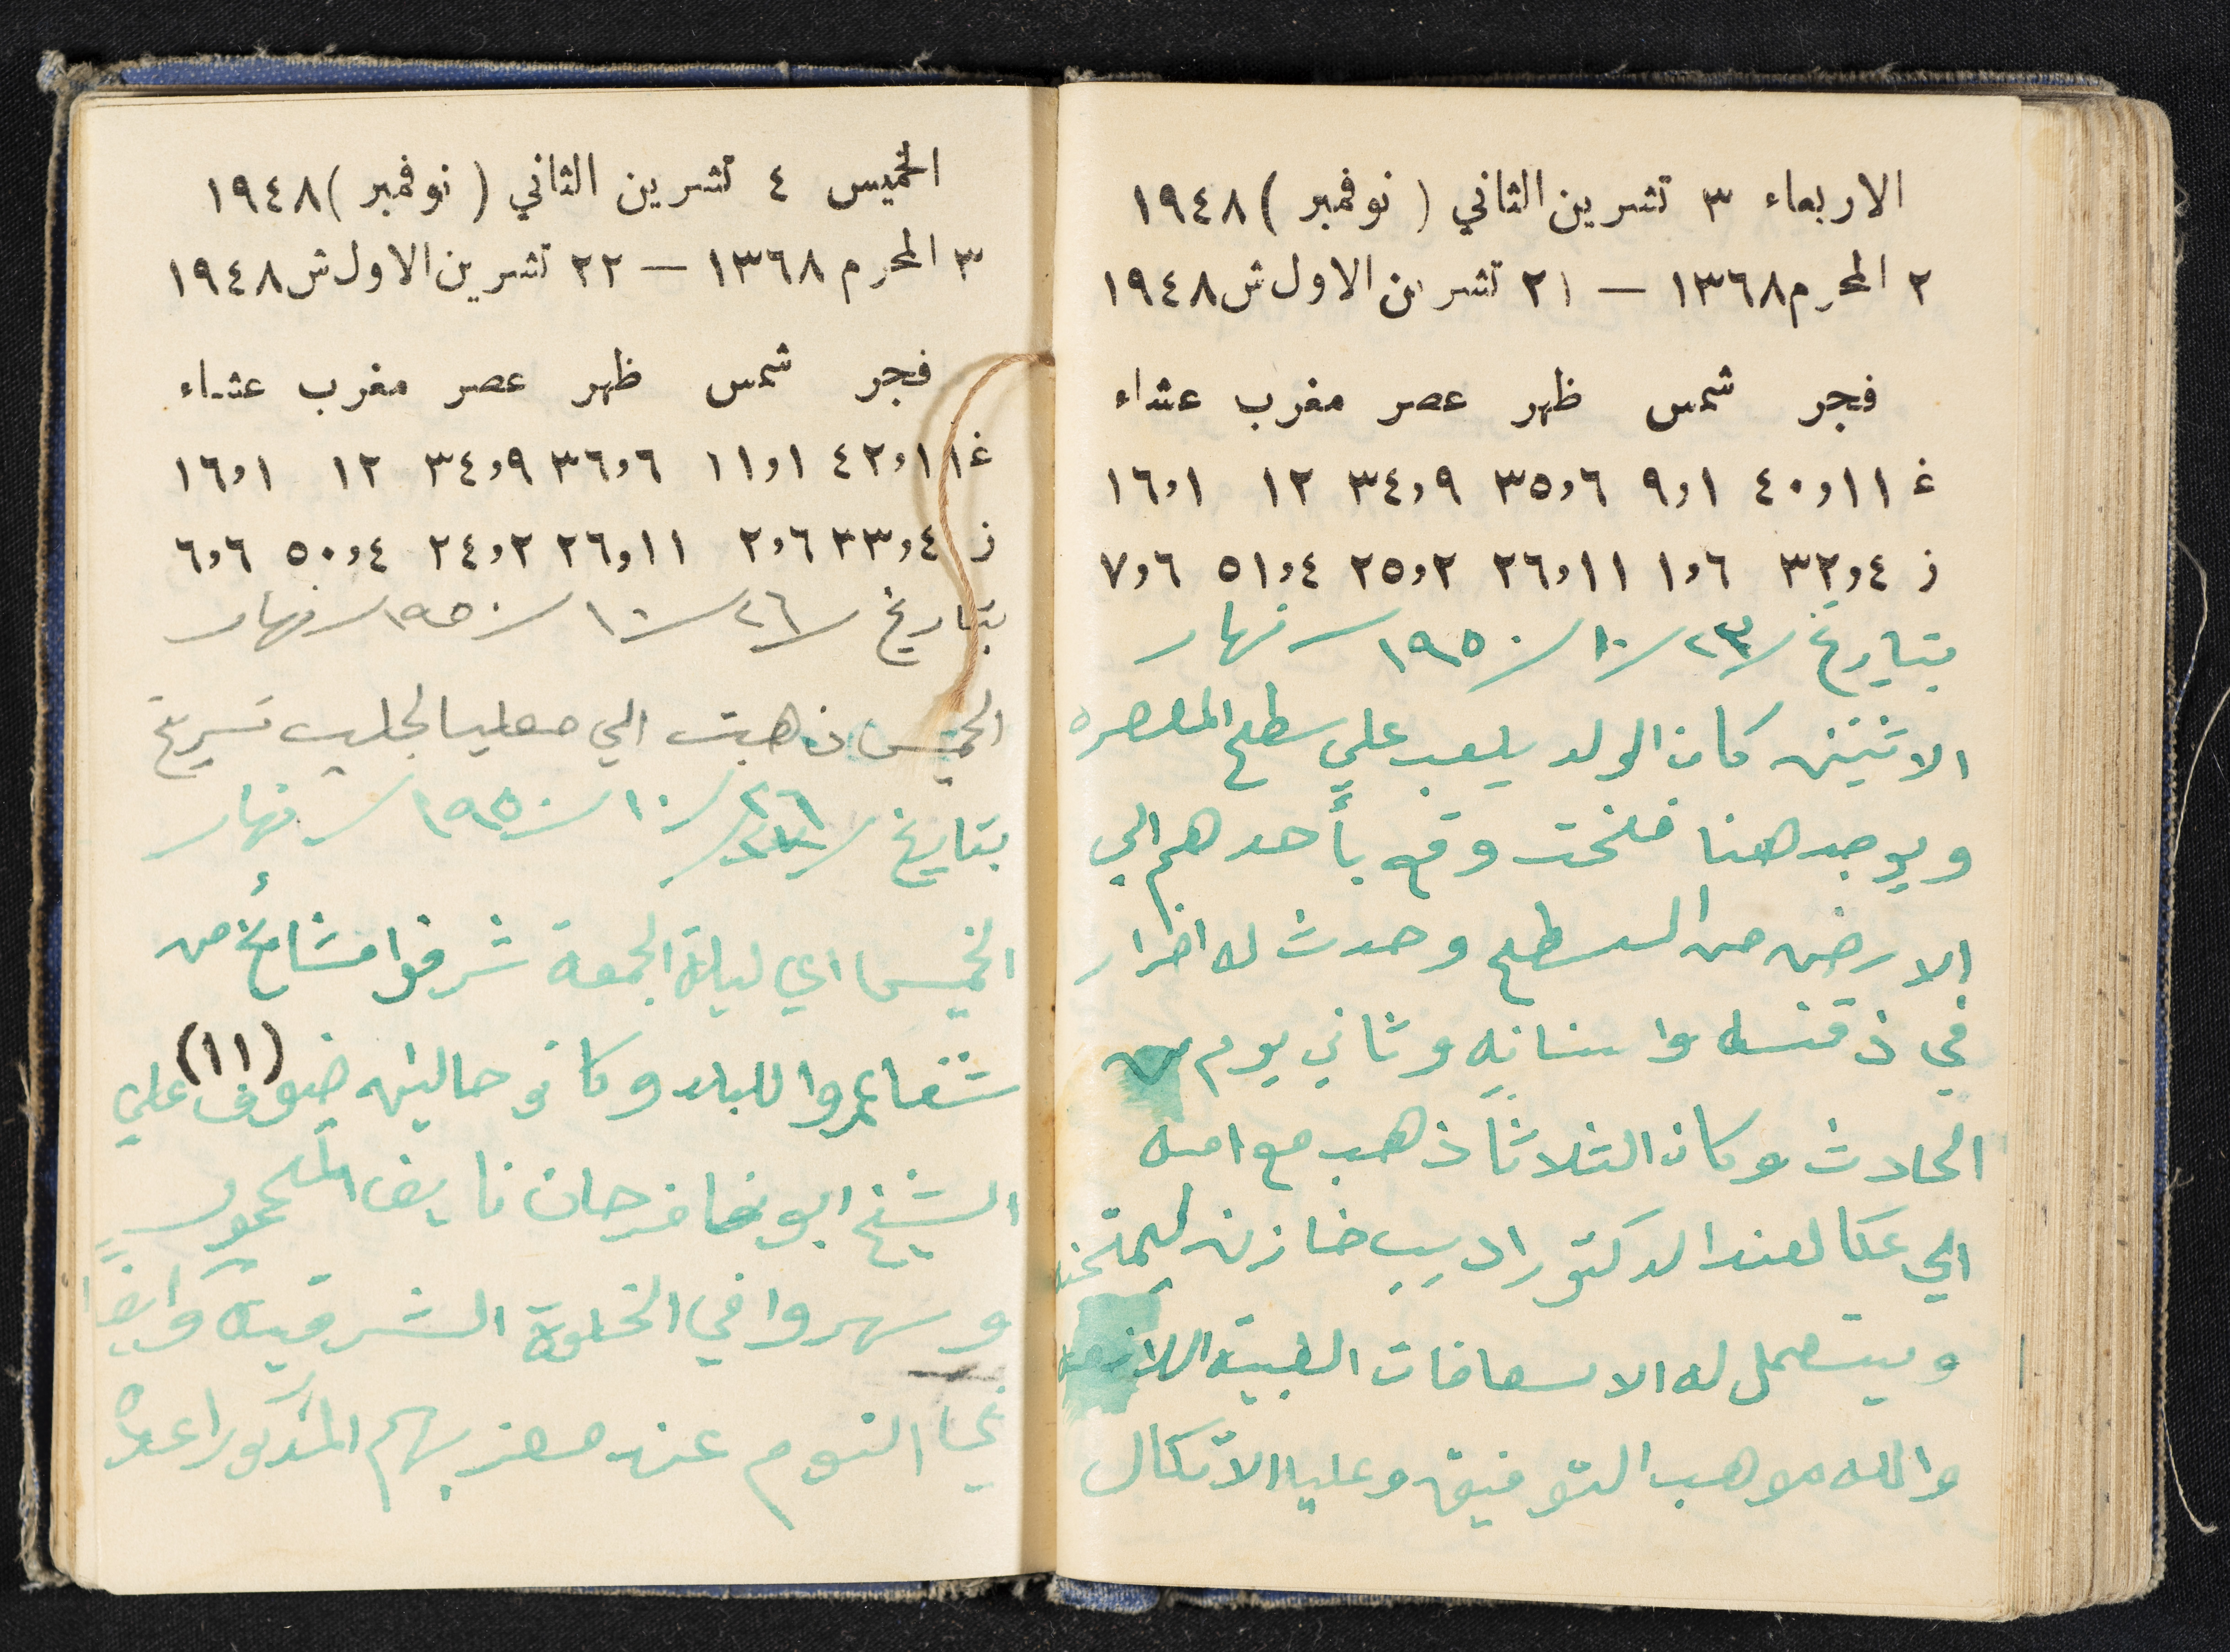 الاربعاء ٣ تشرين الثاني ( نوفمبر ) ١٩٤٨
٢ المحرم ١٣٦٨ — ٢١ تشرين الاول ش ١٩٤٨
فجر شمس ظهر عصر مغرب عشاء
غ ١١،٤٠ ١،٩ ٦،٣٥ ٩،٣٤ ١٢ ١،١٦
ز ٤،٣٢ ٦،١ ١١،٢٦ ٢،٢٥ ٤،٥١ ٦،٧
بتاريخ ٢٣/١٠/١٩٥٠ نهار
الاثنين كان الولد يلعب علي سطح المعصره
ويوجد هنا فلخت وقع بأحدهم الي
الارض من السطح وحدث له اضرار
في ذقنه واسنانه وثاني يوم من
الحادث وكان الثلاثا ذهب مع امه
الي عكا لعند الدكتور اديب خازن ليمتحنه
ويستعمل له الاسعافات الطبية اللازمه
والله موهب التوفيق وعليه الاتكال
الخميس ٤ تشرين الثاني ( نوفمبر ) ١٩٤٨
٣ المحرم ١٣٦٨ — ٢٢ تشرين الاول ش ١٩٤٨
فجر شمس ظهر عصر مغرب عشاء
غ ١١،٤٢ ١،١١ ٦،٣٦ ٩،٣٤ ١٢ ١،١٦
ز ٤،٣٣ ٦،٢ ١١،٢٦ ٢،٢٤ ٤،٥٠ ٦،٦
بتاريخ ٢٦/١٠/١٩٥٠ نهار
الخميس ذهبت الي معليا لجلب تسريح
بتاريخ ٢٦/١٠/١٩٥٠ نهار
الخميس اي ليلة الجمعة شرفوا مشائخ من
شفاعمروا للبلد وكانو حالين ضيوف علي (١١)
الشيخ ابو فرحان نايف
وسهروا في الخلوة الشرقية وايضاً
النوم عند معزبهم المذكور اعلاه